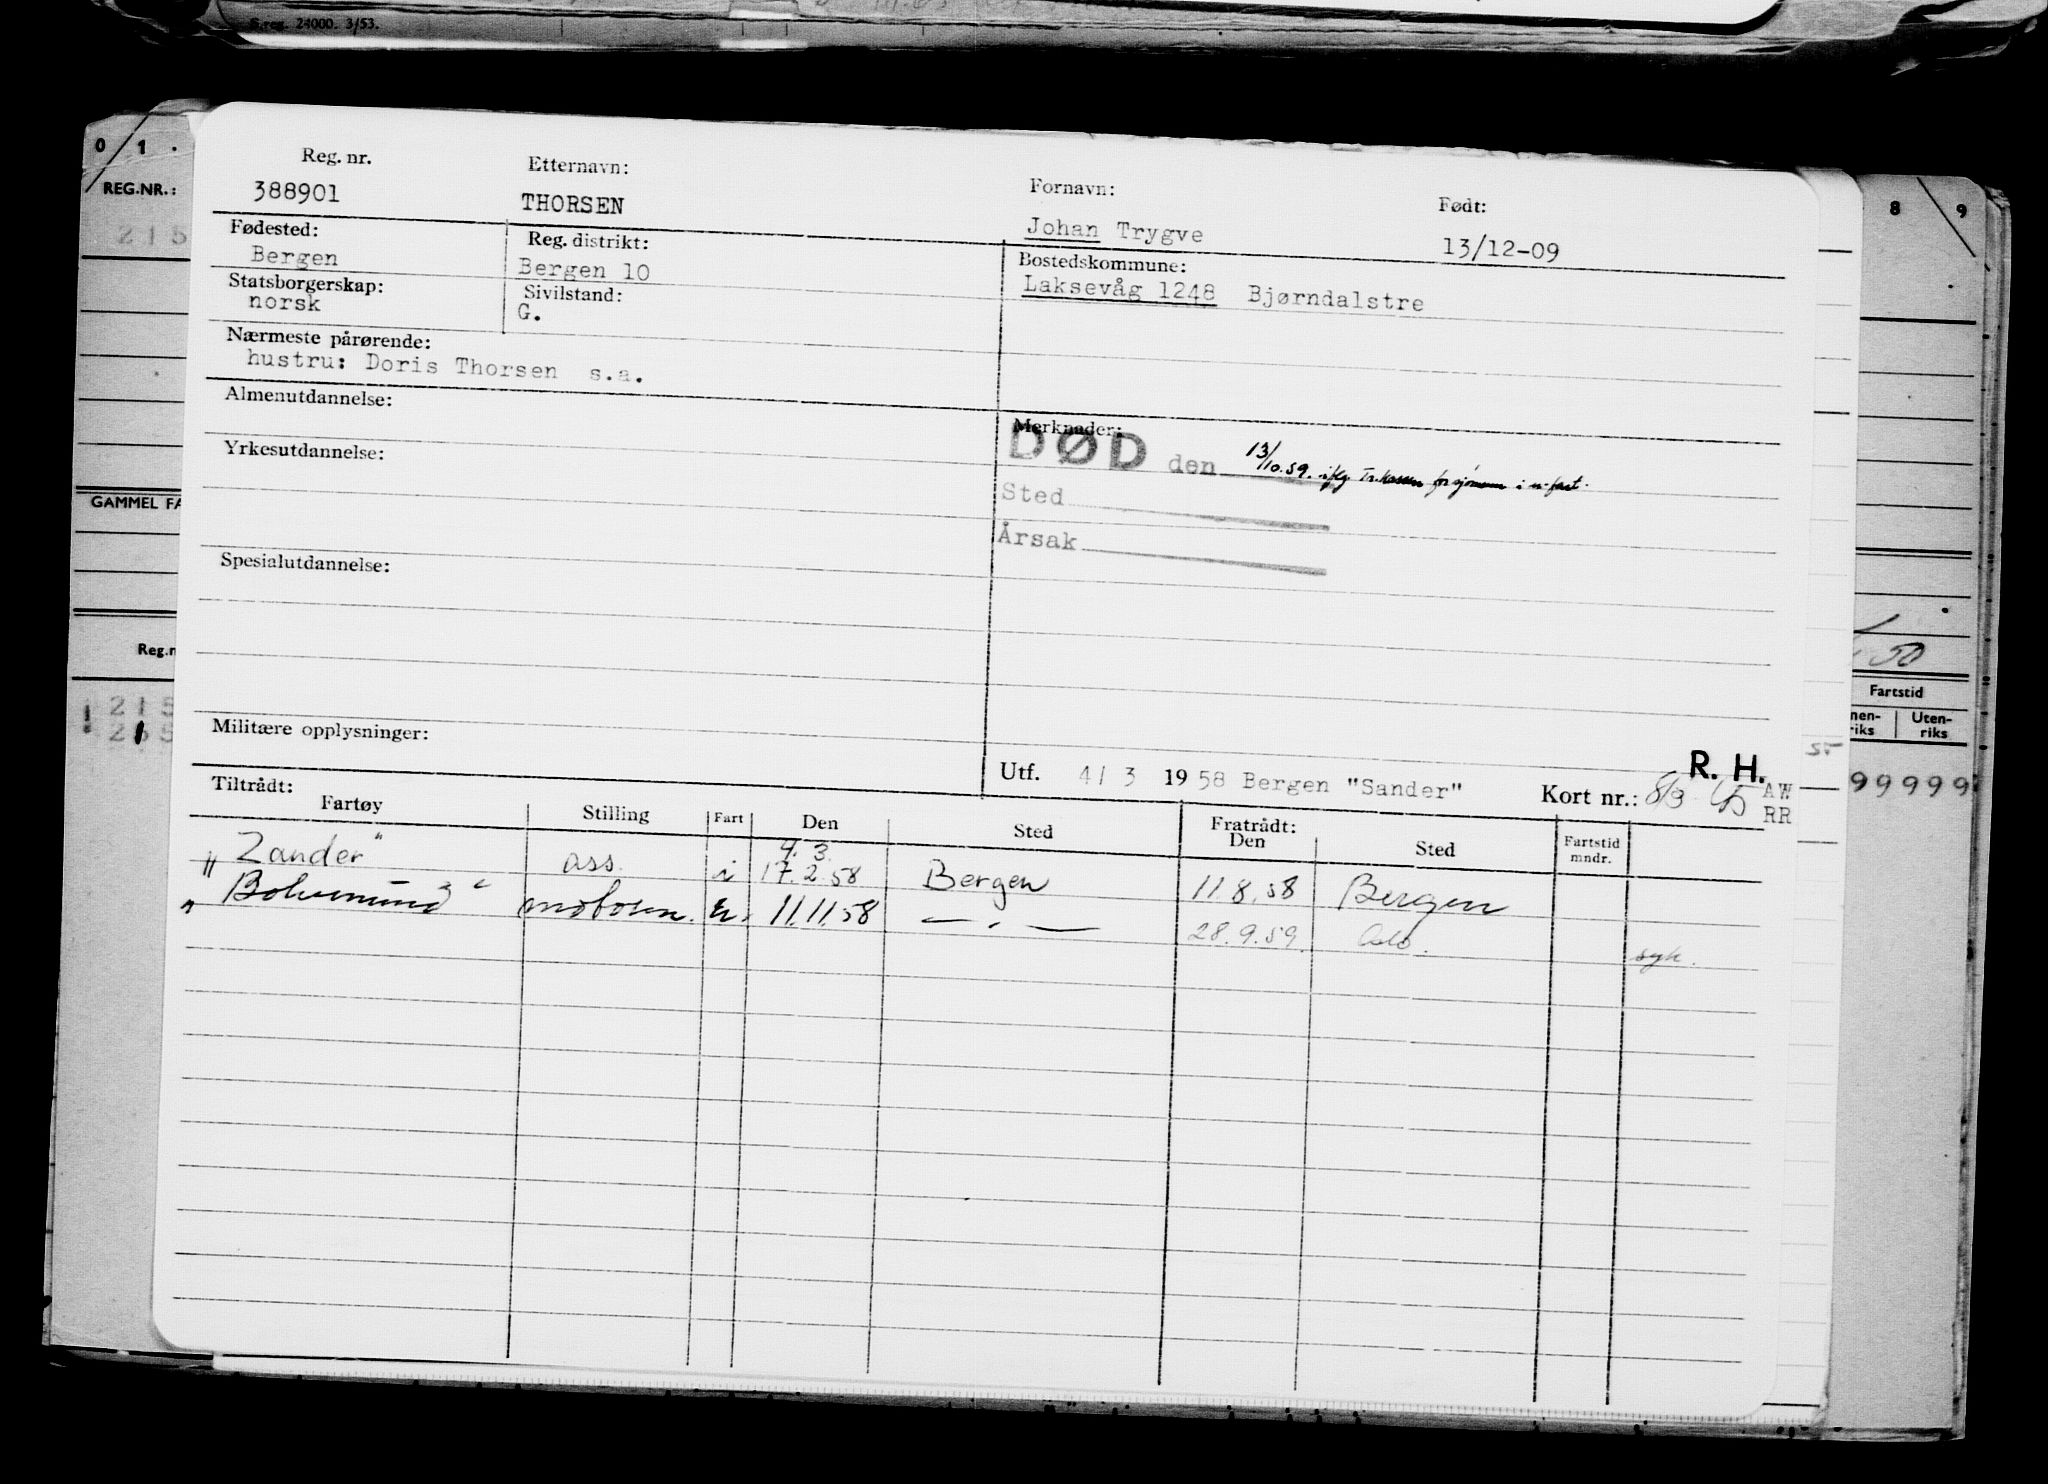 S.reg. 24000. 3/53.
0 1 .
8 9
REG.NR.:
215
Reg. nr. Etternavn: Fornavn: Født:
388901 THORSEN Johan Trygve 13/12-09
Fødested: Reg. distrikt: Bostedskommune:
Bergen Bergen 10 Laksevåg 1248 Bjørndalstre
Statsborgerskap: Sivilstand:
norsk G.
Nærmeste pårørende:
hustru: Doris Thorsen s.a.
Almenutdannelse: Merknader:
DØD den 13/10.59. iflg. Tr.kassen for sjømenn i u-fart.
Yrkesutdannelse:
Sted
Årsak
GAMMEL FA
Spesialutdannelse:
Reg.n
50
Fartstid
nen-riks Uten-riks
215
215
99999
Militære opplysninger:
R. H.
Utf. 4/ 3 19 58 Bergen "Sander" Kort nr.: 8/3 AW
RR
Tiltrådt:
Fartøy Stilling Fart Den Sted Fratrådt: Den Sted Fartstid mndr.
4. 3.
"Zander" ass. i 17.2.58 Bergen 11.8.58 Bergen
" " u. 11.11.58 — " — 28.9.59. Oslo. syk.